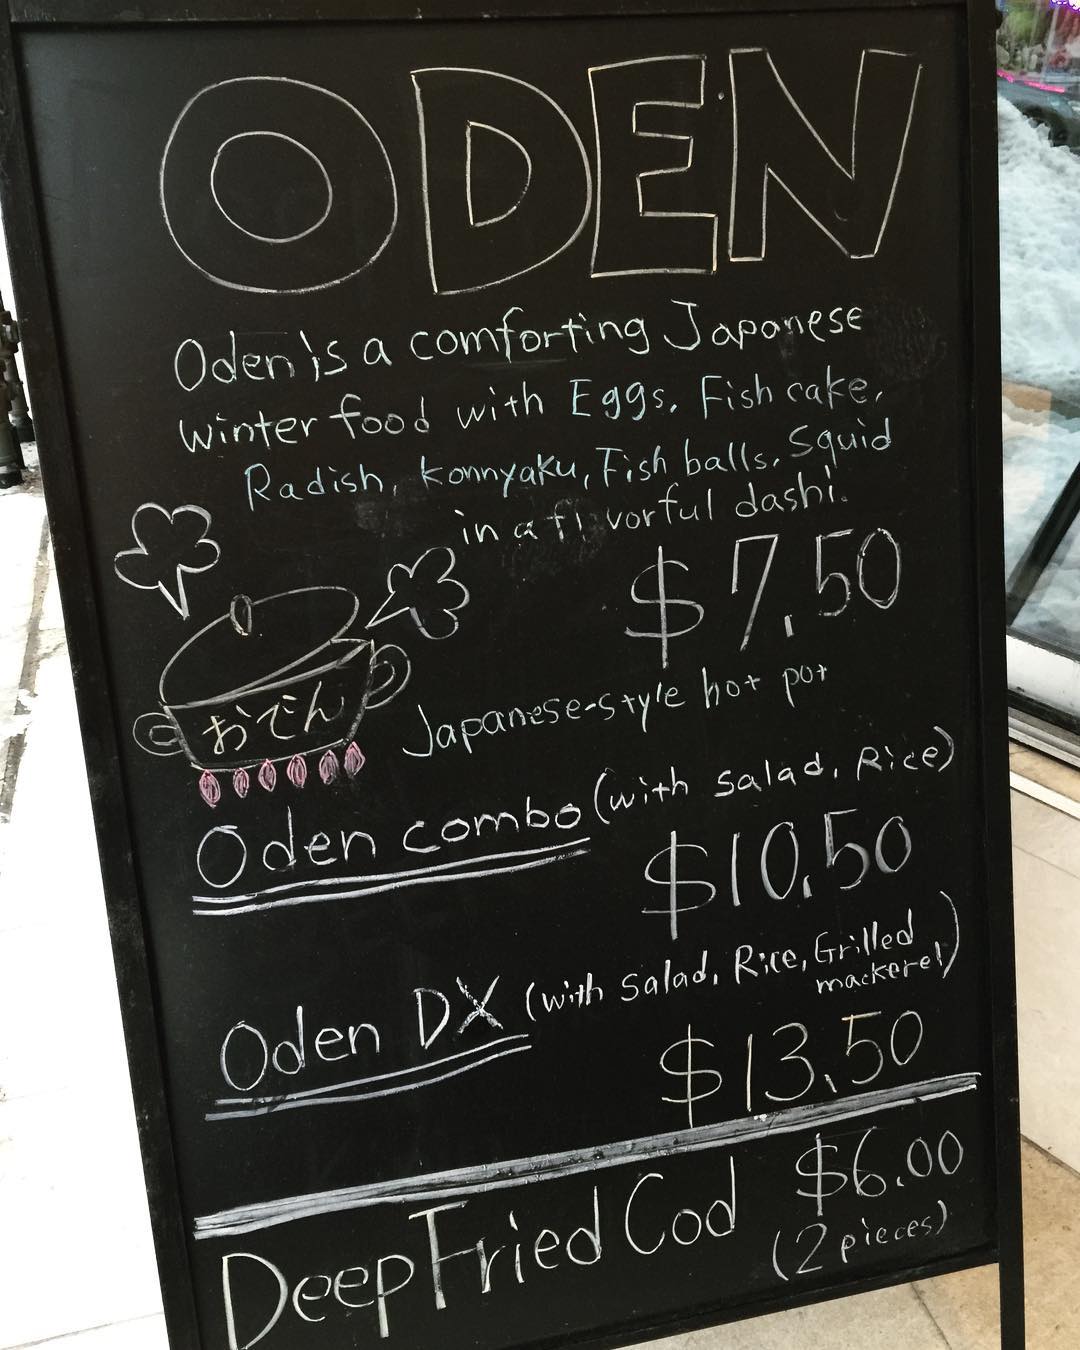 ODEN
Oden is a comforting Japanese
winter food with Eggs, Fish cake,
Radish, Konnyaku, Fish balls, Squid
in a fl vorful dashi.
$7.50
おでん
Japanese-style hot pot
Oden combo (with Salad, Rice)
$10.50
Oden DX (with Salad, Rice, Grilled
mackerel)
$13.50
Deep Fried Cod $6.00
(2 pieces)